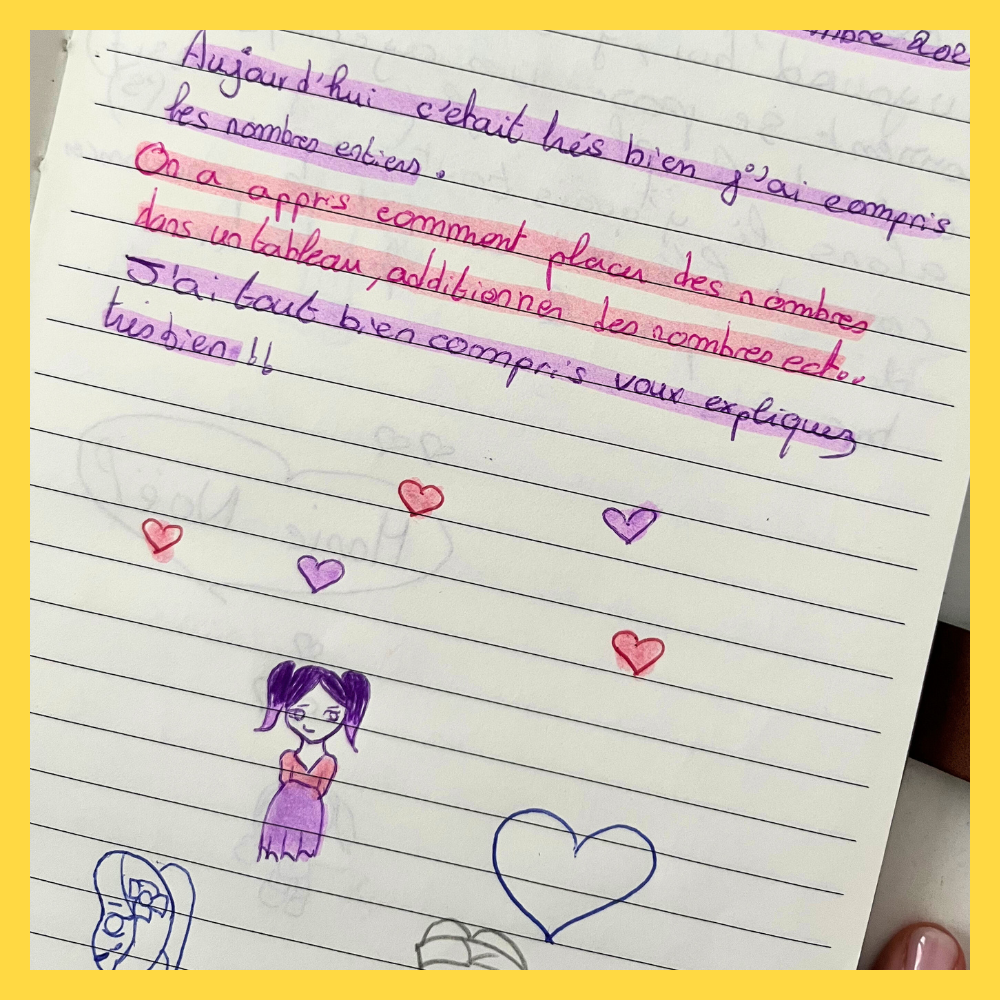 mbre 202
Aujourd'hui c'etait trés bien j'ai compris
les nombres entiers.
On a appris comment placer des nombres
dans un tableau, additionner des nombres ect...
J'ai tout bien compris vous expliquez
très bien !!